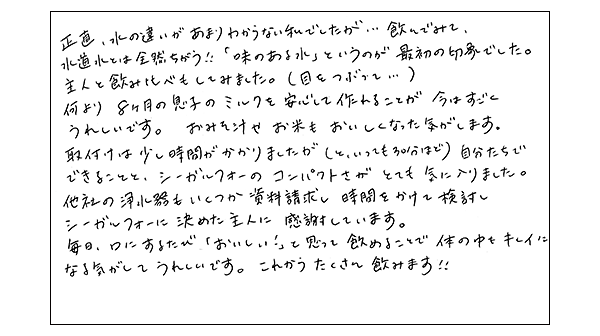 正直、水の違いがあまりわからない私でしたが… 飲んでみて、
水道水とは全然ちがう!!「味のある水」というのが最初の印象でした。
主人と飲み比べもしてみました。(目をつぶって…)
何より 8ヶ月の息子のミルクを安心して作れることが 今はすごく
うれしいです。 おみそ汁や お米も おいしくなった気がします。
取付けは少し時間がかかりましたが(と、いっても30分ほど)自分たちで
できることと、シーガルフォーの コンパクトさが とても気に入りました。
他社の浄水器もいくつか資料請求し 時間をかけて検討し
シーガルフォーに決めた主人に 感謝しています。
毎日、口にするたび「おいしい!」と思って飲めることで 体の中もキレイに
なる気がして うれしいです。 これからたくさん飲みます!!